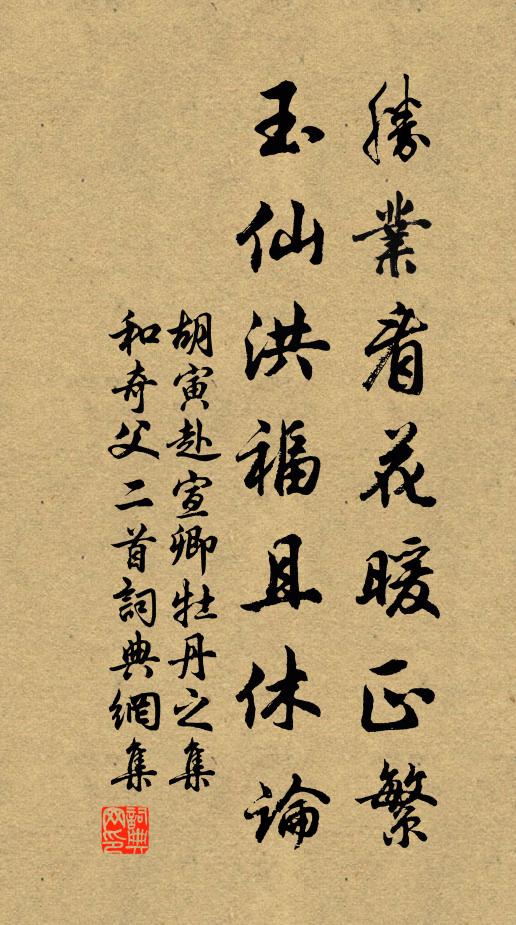 勝業看花暖正繁
玉仙洪福且休論
胡寅赴宣卿牡丹之集
和奇父二首詞典網集
詞典网印